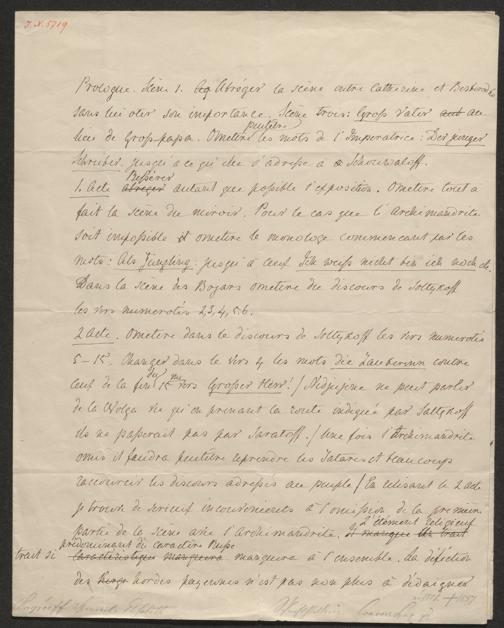 J.N. 5719
Prologue. Scène 1. Abréger la scène entre Catherine et Besborodko
sans lui oter son importance. Scène trois: Gross Vater au
lieu de Gross-papa. Omettre peutetre les mots de l'Imperatrice: Der junger
Schreiber. jusqu'a ce qu'elle s'adresse a Schouwaloff.
1. Acte abreger Resserer autant que possible l'exposition. Omettre tout a
fait la scène du miroir. Pour le cas que l'Archimandrite
soit impossible omettre le monologe commencant par les
mots: Als Jüngling: jusqu'a ceuf Ich weiss nicht bin ich noch etc.
Dans la scène des Bojars ometre du discours de Soltykoff
les vers numerotés 2,3,4,5.6.
2 Acte. Ometre dans le discours de Soltykoff les vers numerotés
5-15. Changer dans le vers 4 les mots die Zauberinn contre
ceuf de la fin du 15me vers Grosser Herr! / Nidjejene ne peut parler
de la Wolga vu qu'en prenant la route indiquée par Saltykoff
ils ne passerait pas par Saratoff. / Une fois l'Archimandrite
omis il faudra peutetre reprendre les Tatares et beaucoup
raccourcir les discours adressés au peuple / En relisant le 2 acte
je trouve de serieuf inconvenients a l'omission de la première
partie de la scène avec l'Archimandrite. L'élément religieuf
trait si prédominant du caractère Russe manquera a l'ensemble. La défection
des hordes payennes n'est pas non plus à dédaigner